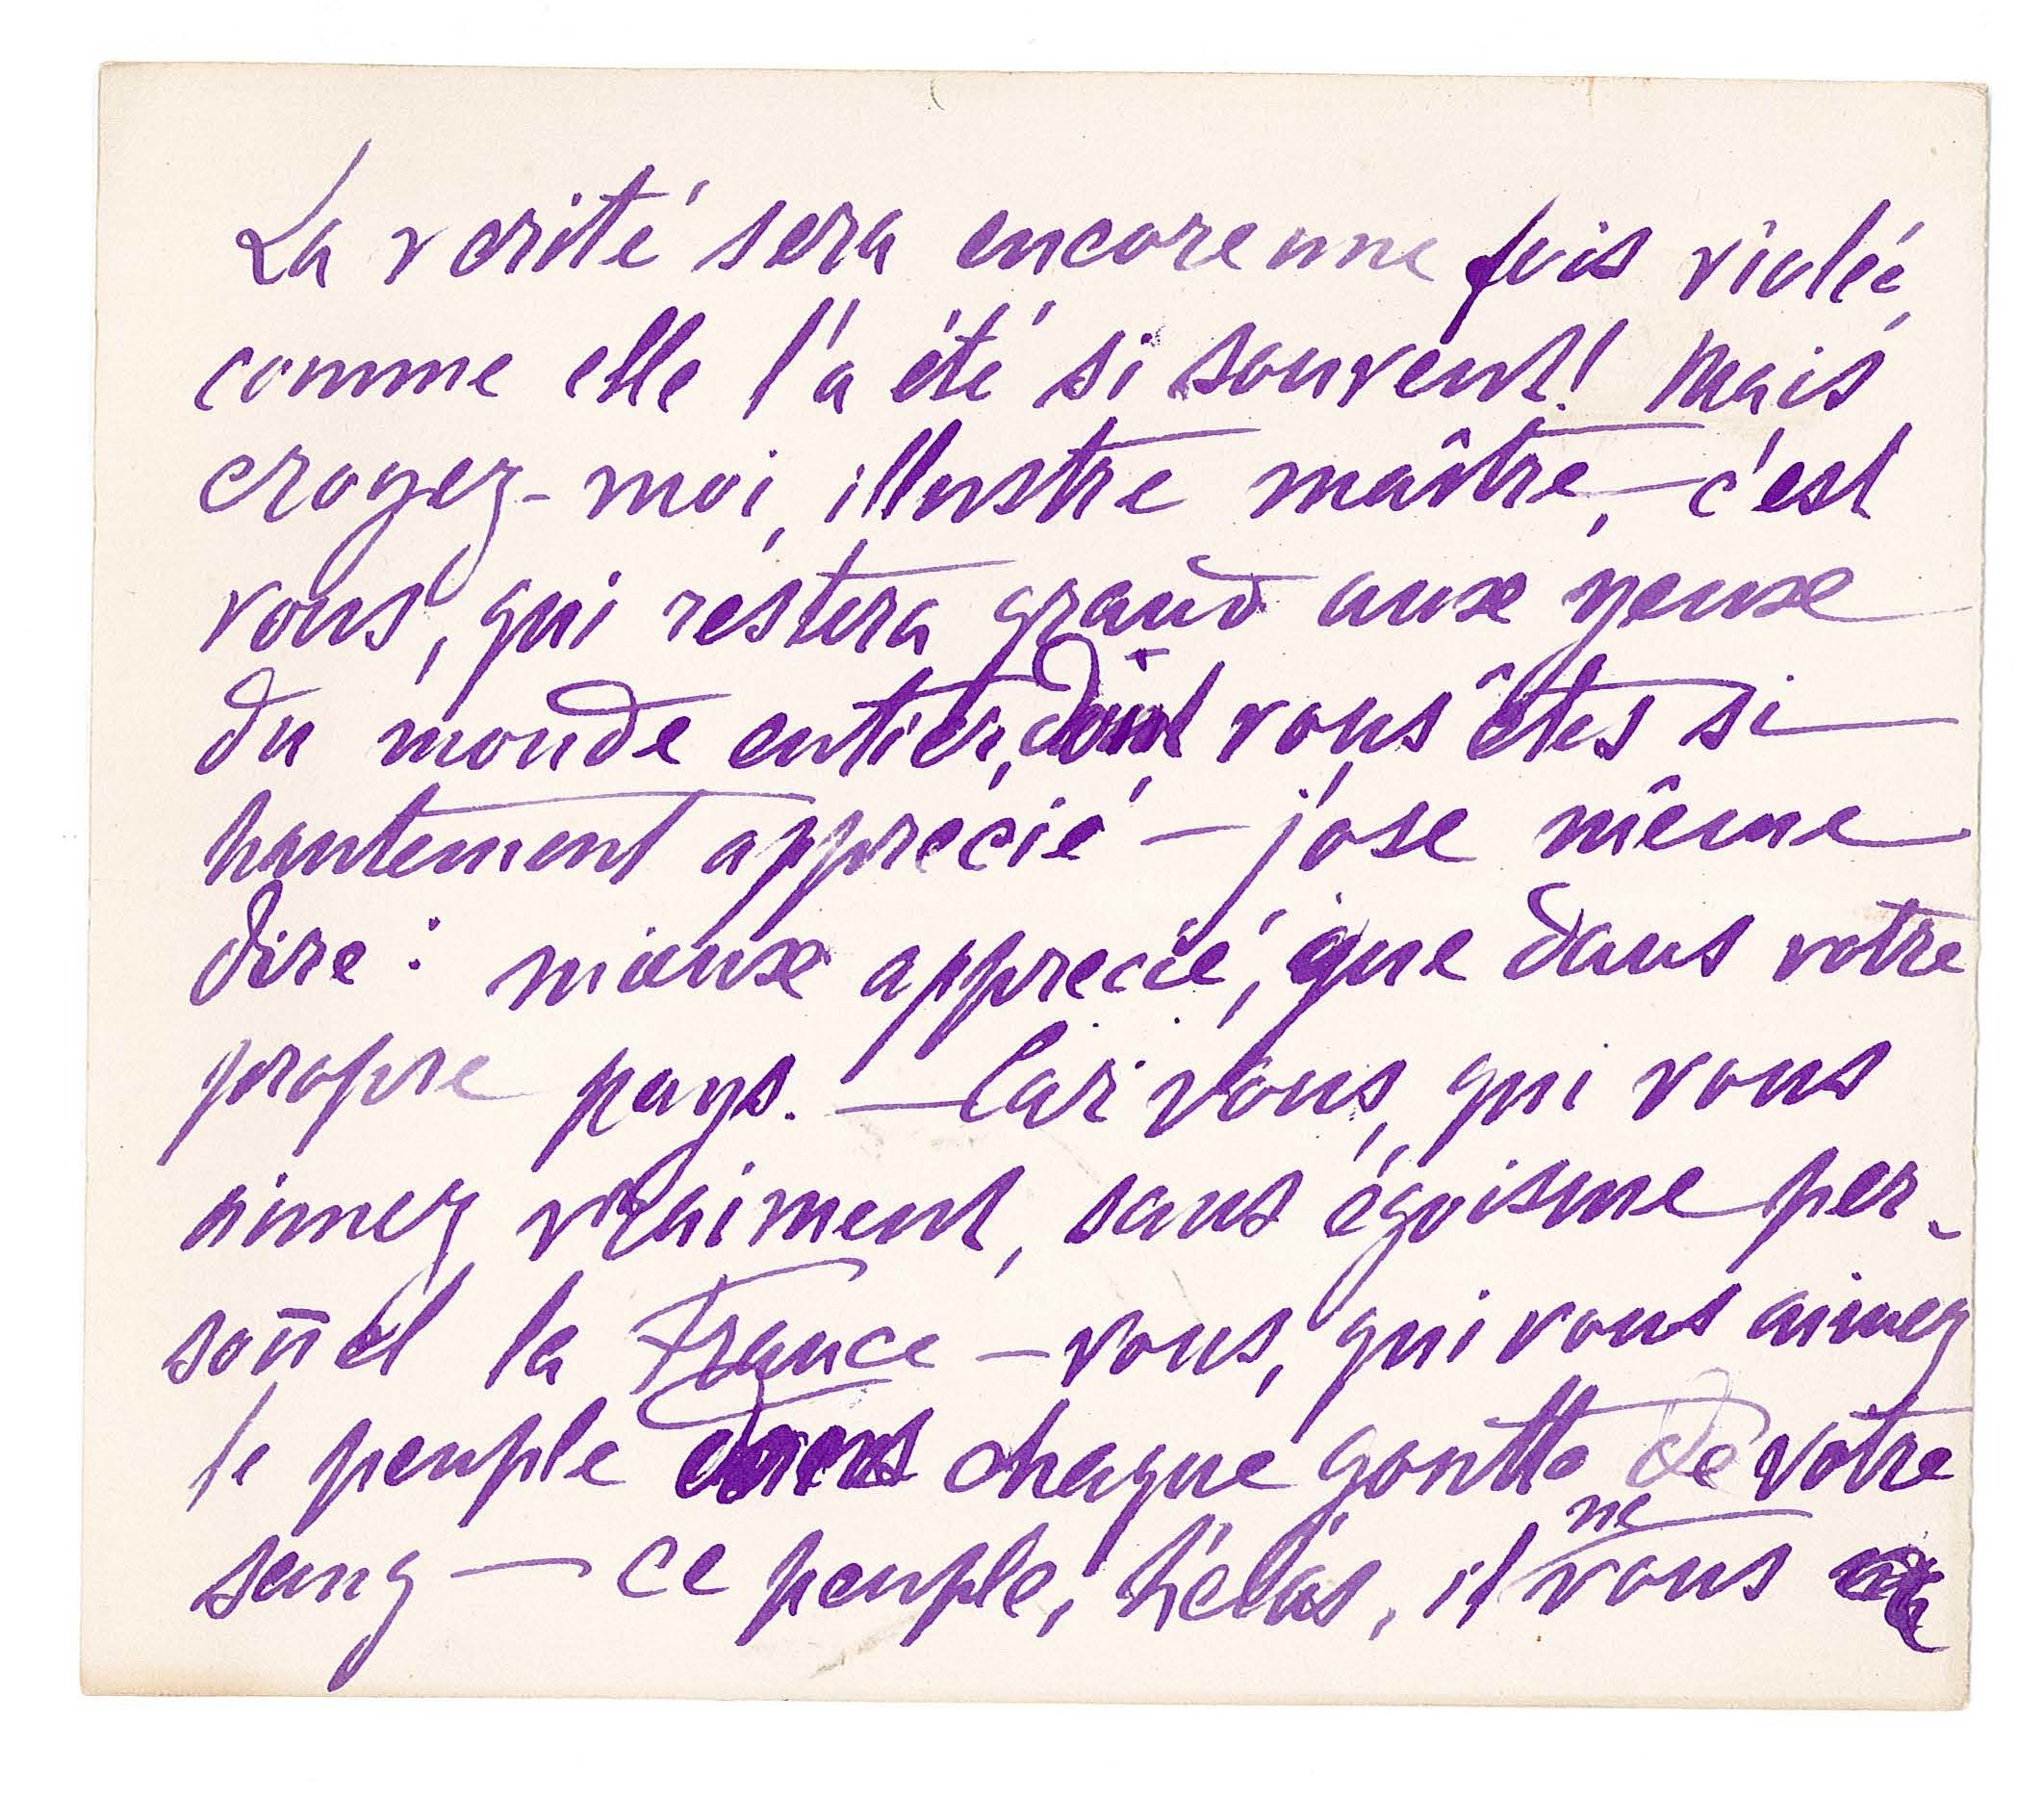 La verité sera encore une fois violée,
comme elle l'a été si souvent! Mais
croyez-moi, illustre maître, — c'est
vous, qui restera grand aux yeux
du monde entier, dont vous êtes si
hautement apprécié — j'ose même
dire: mieux apprecié, que dans votre
propre pays. — Car vous, qui vous
aimez vraiment, sans égoisme per-
son̄el la France — vous, qui vous aimez
le peuple dans chaque goutte de votre
sang — ce peuple, hélas, il ne vous